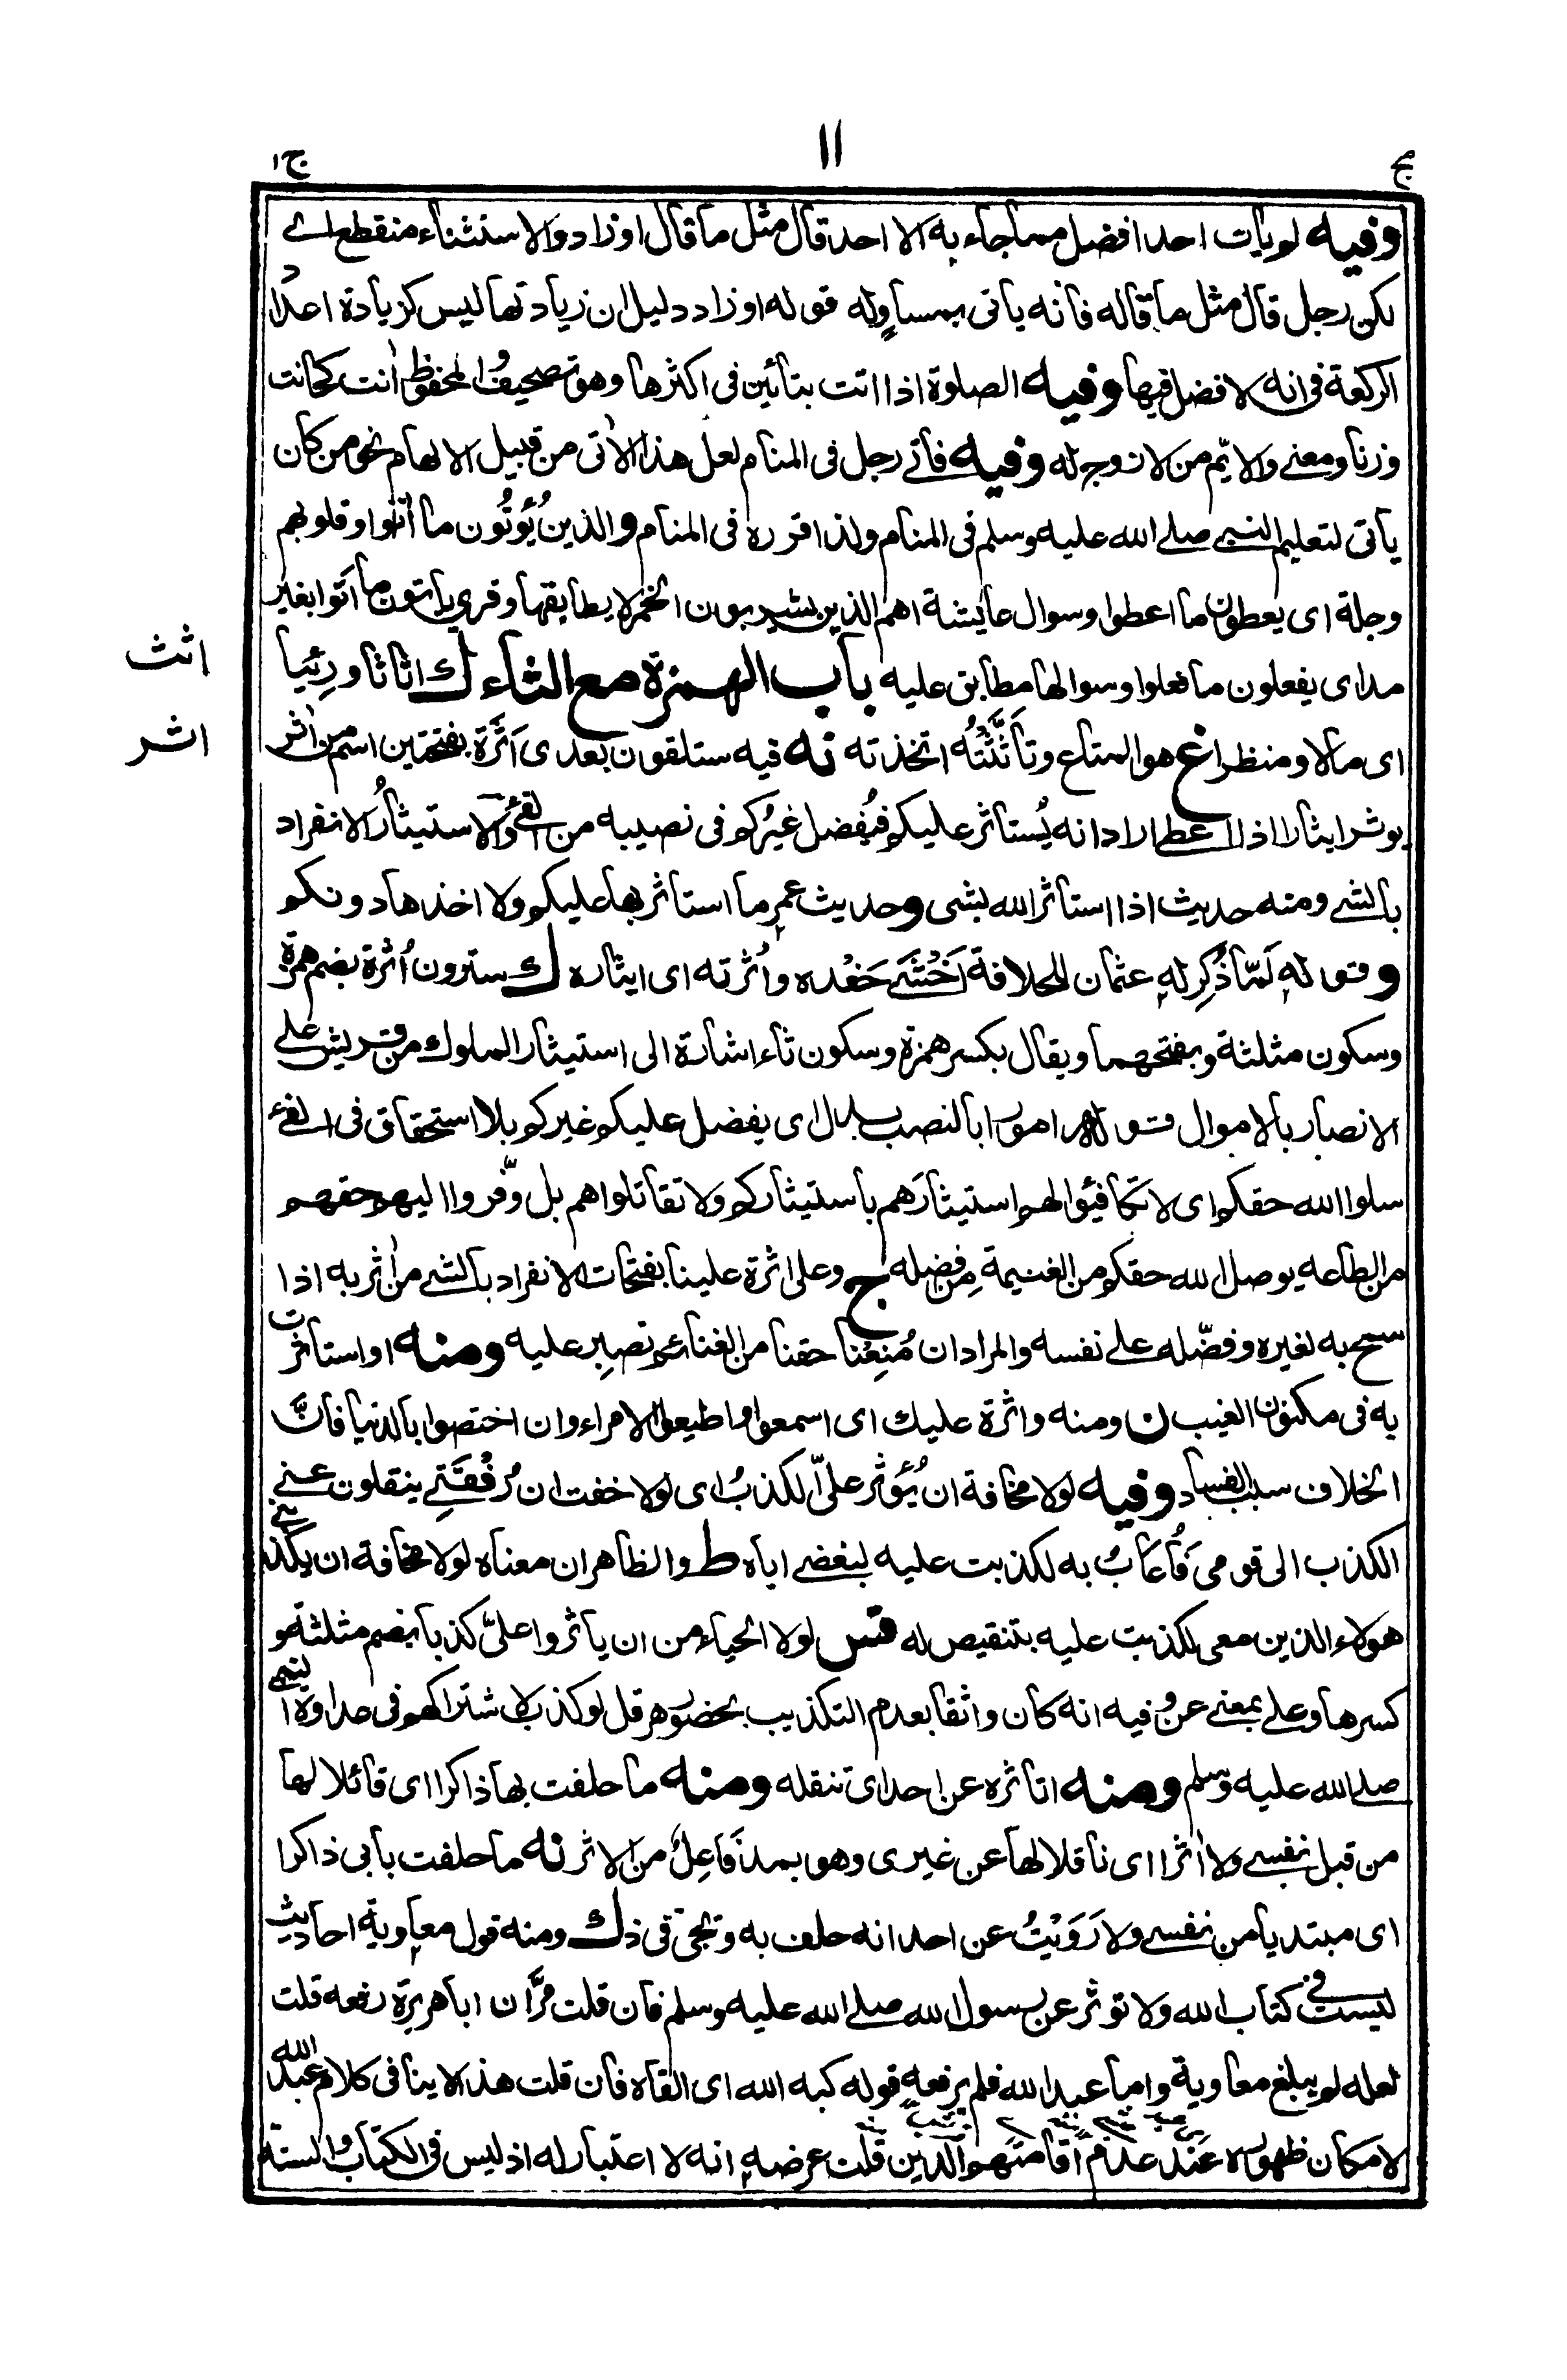 ج١
١١
ج
وفيه لم يات احد افضل مما جاء به الا احد قال مثل ما قال او زاد والاستثناء منقطع اے
لكن رجل قال مثل ما قاله فانه ياتى بمساوٍله قوله او زاد دليل ان زيادتها ليس كزيادة اعداد
الركعة فى انه لا فضل فيها وفيه الصلوة اذا اتت بتائين فى اكثرها وهو تصحيف والمحفوظ انت كحانت
وزنا ومعنے والايّم من لا زوج له وفيه فاتے رجل فى المنام لعل هذا الاتى من قبيل الالهام نحو من كان
ياتى لتعليم النبے صلے الله عليه وسلم فى المنام ولذا قرره فى المنام والذين يُؤتُون ما اتوا وقلوبهم
وجلة اى يعطون ما اعطوا وسوال عايشة اهم الذين يشربون الخمر لا يطابقها وقرى ياتون ما اَتوا بغير
مد اى يفعلون ما فعلوا وسوالها مطابق عليه باب الهمزة مع الثاء ك اثاثا ورِئيا
اثث
اى مالا ومنظرا غ هو المتاع وتأَثَّثتُه اتخذته نه فيه ستلقون بعدى اَثَرَة بفتحتين اسم من اثر
اثر
يوثر ايثارا اذا اعطے اراد انه يُستاثر عليكم فيُفضل غيرُكم فى نصيبه من الفئ والاستيثارُ الانفراد
بالشے ومنه حديث اذا استاثر الله بشى وحديث عمر ما استاثر بها عليكم ولا اخذها دونكم
وقوله لَمّا ذُكِر له عثمان للخلافة اَخْشَے حَفْده واُثرته اى ايثاره ك سترون اُثرة بضم همزة
وسكون مثلثة وبفتحهما ويقال بكسر همزة وسكون ثاء اشارة الى استيثار الملوك من قريش علے
الانصار بالاموال قوله امورا بالنصب بدل اى يفضل عليكم غيركم بلا استحقاق فى الفئ
سلوا الله حقكم اى لا تكافيئوا لهم استيثارَهم باستيثاركم ولا تقاتلواهم بل وفّروا اليهم حقهم
من الطاعه يوصل الله حقكم من الغنيمة مِن فضله ج وعلى اثرة علينا بفتحات الانفراد بالشے من اثر به اذا
سمح به لغيره وفضّله علے نفسه والمراد ان مُنِعْنا حقنا من الغنائم نصبِر عليه ومنه او استاثرت
به فى مكنون الغيب ن ومنه واثرة عليك اى اسمعوا واطيعوا الامراء وان اختصوا بالدنيا فانَّ
الخلاف سبب الفساد وفيه لولا مخافة ان يُؤثر علىّ الكذبُ اى لولا خفت ان رُفْقَتے ينقلون عنے
الكذب الى قومى فَاُعَابُ به لكذبت عليه لبغضے اياه ط والظاهر ان معناه لولا مخافة ان يكذبنى
هولاء الذين معى لكذبت عليه بتنقيص له قس لولا الحياء من ان ياثروا علىَّ كذبا بضم مثلثة و
كسرها وعلے بمعنے عن وفيه انه كان واثقا بعدم التكذيب بحضور هرقل لو كذب لاشتراكهم فى عداوة النبى
صلے الله عليه وسلم ومنه اتاثره عن احد اى تنقله ومنه ما حلفت بها ذاكرا اى قائلا لها
من قبل نفسے ولا اثرا اى ناقلا لها عن غيرى وهو بمد فَاعِلٌ من الاثر نه ما حلفت بابى ذاكرا
اى مبتديا من نفسے ولا رَوَيْتُ عن احد انه حلف به وتجئ قى ذك ومنه قول معاوية احاديث
ليست فى كتاب الله ولا توثر عن رسول الله صلے الله عليه وسلم فان قلت مرَّ ان ابا هريرة رفعه قلت
لعله لم يبلغ معاوية واما عبد الله فلم يرفعه قوله كبه الله اى القاه فان قلت هذا لا ينافى كلام عبد الله
لامكان ظهوره عند عدم اقامتهم الدين قلت عرضه انه لا اعتبار له اذ ليس فى الكتاب والسنة